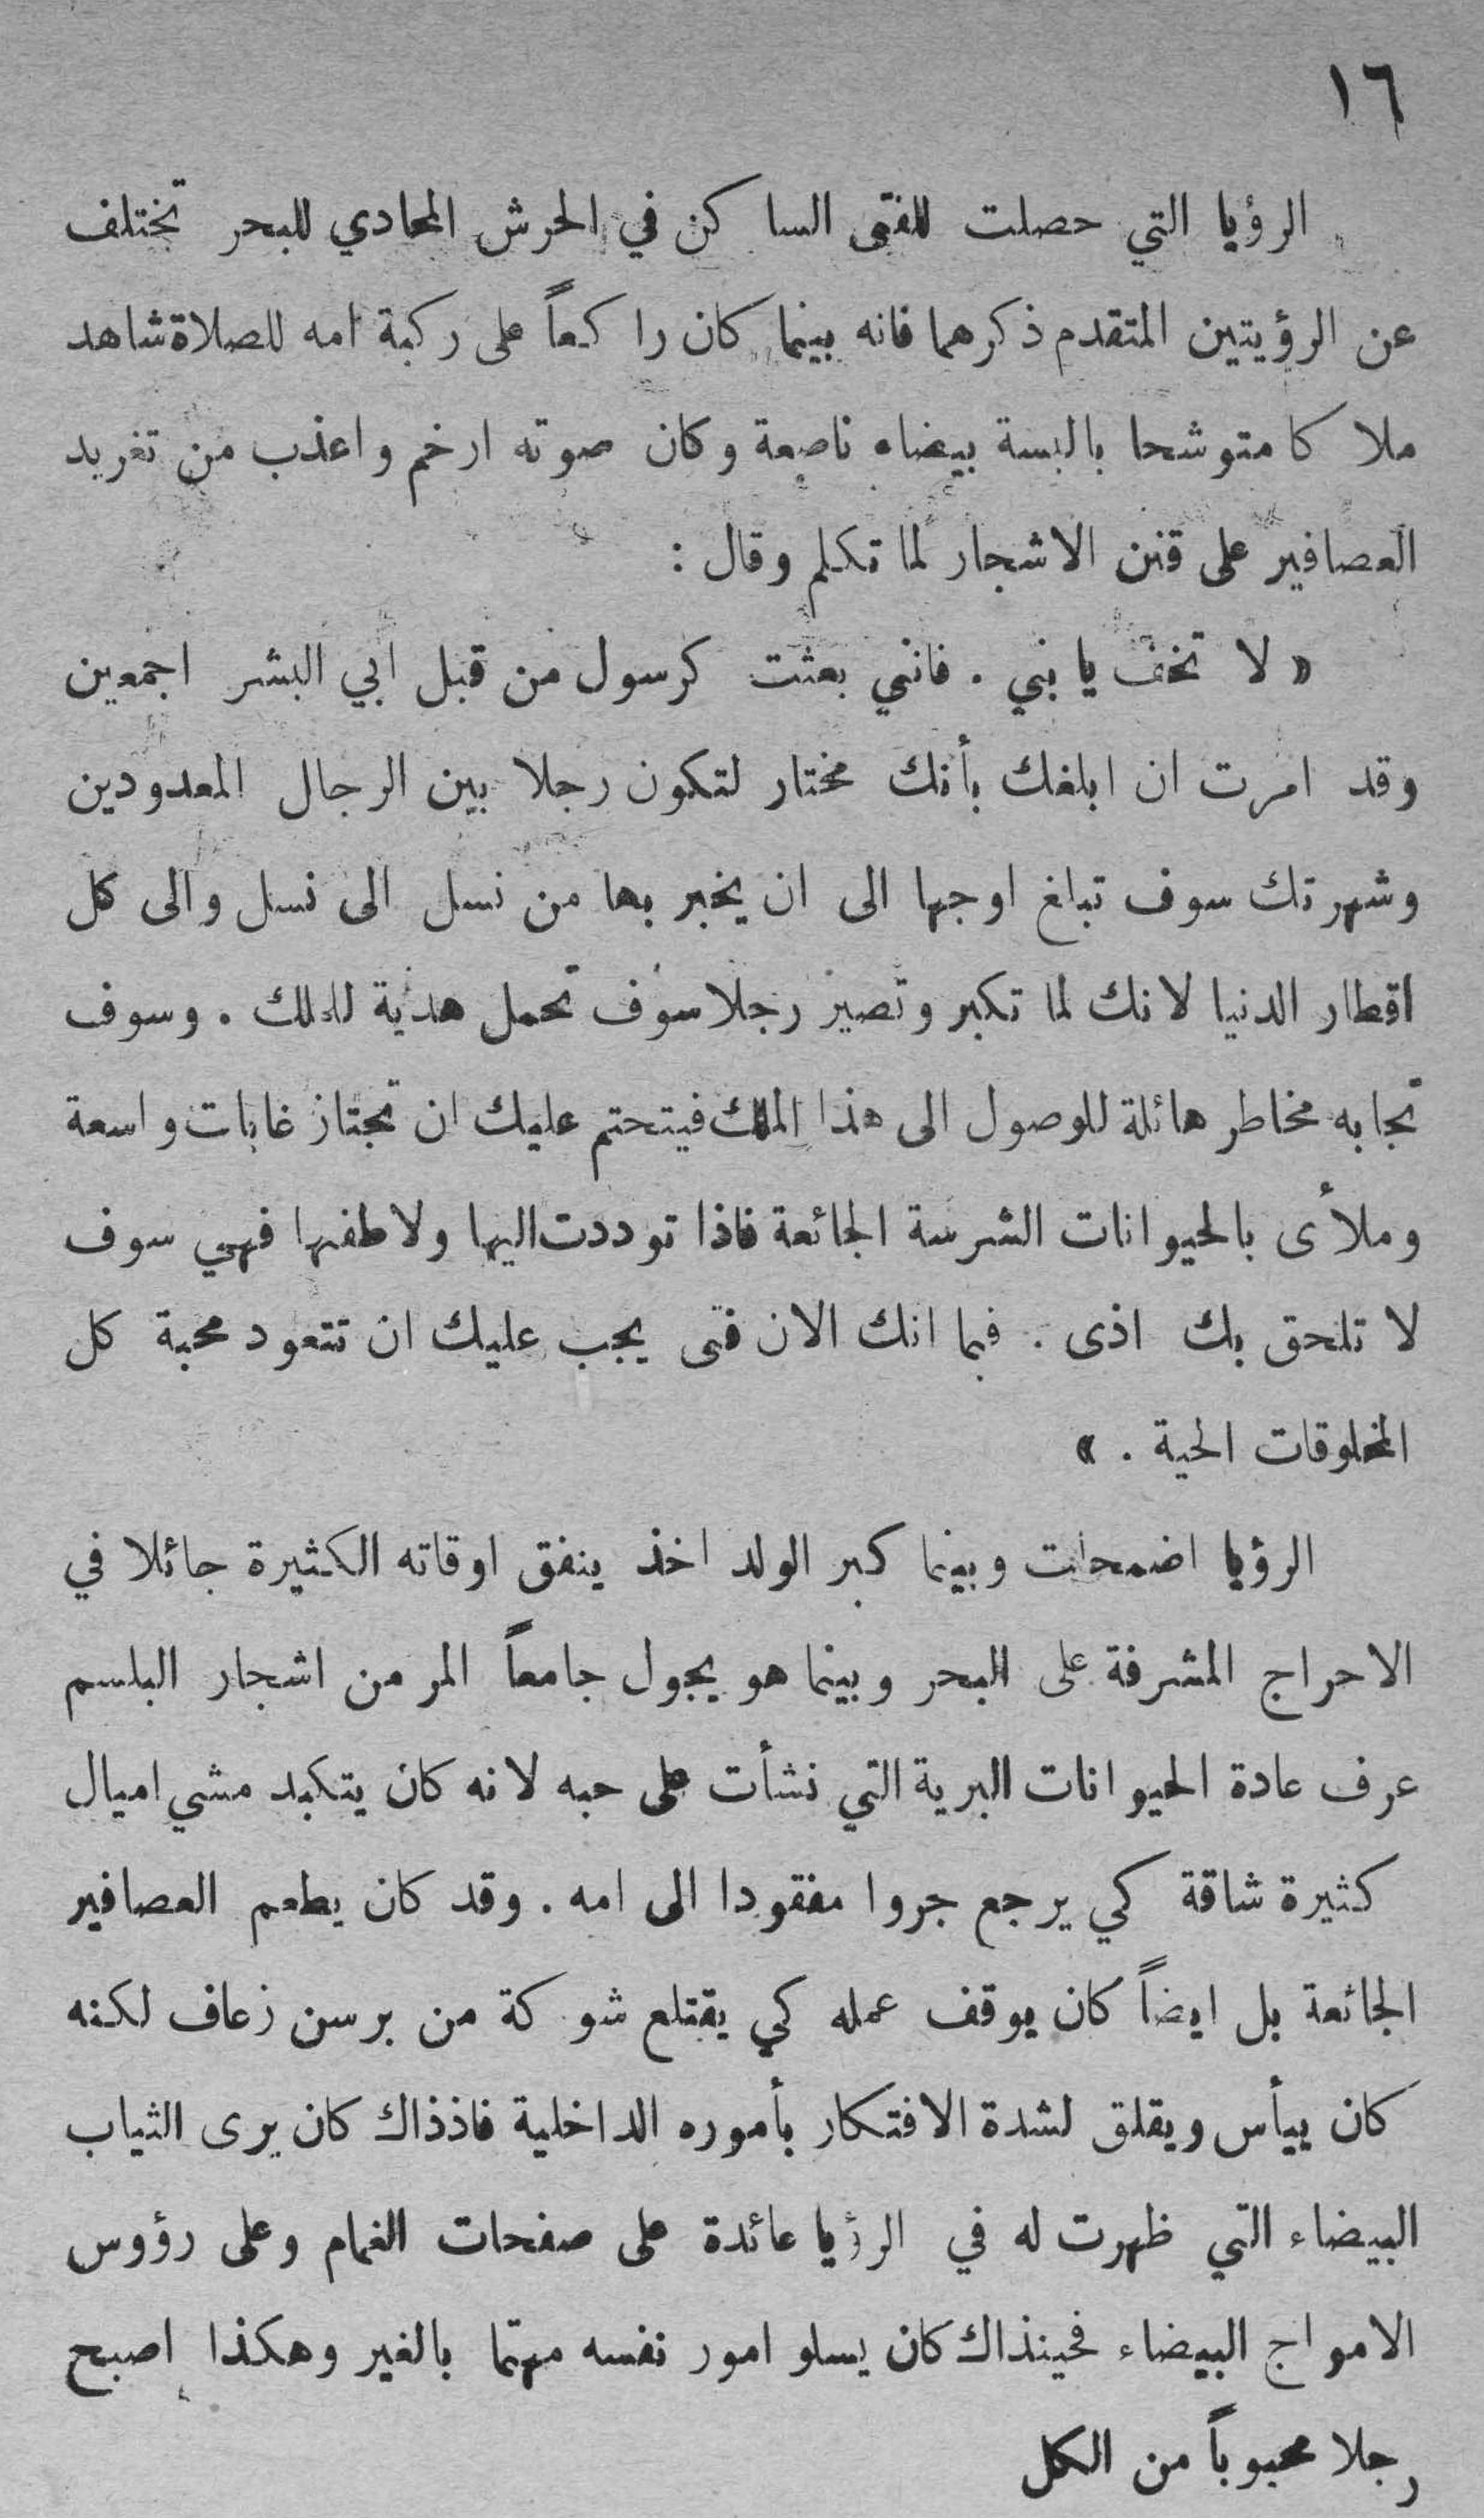 ١٦
الرؤيا التي حصلت للفتى الساكن في الحرش المحادي للبحر تختلف
عن الرؤيتين المتقدم ذكرهما فانه بينما كان راكعاً على ركبة امه للصلاة شاهد
ملاكا متوشحا بالبسة بيضاء ناصعة وكان صوته ارخم واعذب من تغريد
العصافير على قنن الاشجار لما تكلم وقال :
« لا تخف يا بني . فانني بعثت كرسول من قبل ابي البشر اجمعين
وقد امرت ان ابلغك بأنك مختار لتكون رجلا بين الرجال المعدودين
وشهرتك سوف تبلغ اوجها الى ان يخبر بها من نسل الى نسل والى كل
اقطار الدنيا لانك لما تكبر وتصير رجلا سوف تحمل هدية للملك . وسوف
تجابه مخاطر هائلة للوصول الى هذا الملك فيتحتم عليك ان تجتاز غابات واسعة
وملأى بالحيوانات الشرسة الجائعة فاذا توددت اليها ولاطفتها فهي سوف
لا تلحق بك اذى . فبما انك الان فتى يجب عليك ان تتعود محبة كل
المخلوقات الحية . »
الرؤيا اضمحلت وبينما كبر الولد اخذ ينفق اوقاته الكثيرة جائلا في
الاحراج المشرفة على البحر وبينما هو يجول جامعاً المر من اشجار البلسم
عرف عادة الحيوانات البرية التي نشأت على حبه لانه كان يتكبد مشي اميال
كثيرة شاقة كي يرجع جروا مفقودا الى امه . وقد كان يطعم العصافير
الجائعة بل ايضاً كان يوقف عمله كي يقتلع شوكة من برسن زعاف لكنه
كان ييأس ويقلق لشدة الافتكار بأموره الداخلية فاذذاك كان يرى الثياب
البيضاء التي ظهرت له في الرؤيا عائدة على صفحات الغمام وعلى رؤوس
الامواج البيضاء فحينذاك كان يسلو امور نفسه مهتما بالغير وهكذا اصبح
رجلا محبوباً من الكل